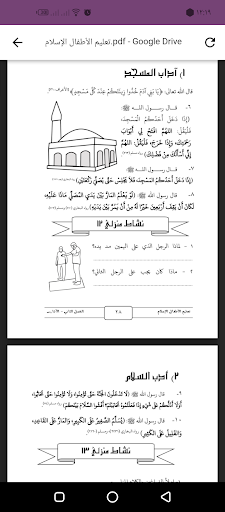 ١٢:١٩
تعليم الأطفال الإسلام.pdf - Google Drive
١) آداب المسجد
قال الله تعالى: ﴿يَا بَنِي آدَمَ خُذُوا زِينَتَكُمْ عِنْدَ كُلِّ مَسْجِدٍ﴾
٦- قال رسول الله ﷺ:
(إِذَا دَخَلَ أَحَدُكُمُ الْمَسْجِدَ،
فَلْيَقُلْ: اللهُمَّ افْتَحْ لِي أَبْوَابَ
رَحْمَتِكَ، وَإِذَا خَرَجَ، فَلْيَقُلْ: اللهُمَّ
إِنِّي أَسْأَلُكَ مِنْ فَضْلِكَ)
٧- قال رسول الله ﷺ:
(إِذَا دَخَلَ أَحَدُكُمُ الْمَسْجِدَ، فَلَا يَجْلِسْ حَتَّى يُصَلِّيَ رَكْعَتَيْنِ)
٨- قال رسول الله ﷺ (لَوْ يَعْلَمُ الْمَارُّ بَيْنَ يَدَيِ الْمُصَلِّي مَاذَا عَلَيْهِ،
لَكَانَ أَنْ يَقِفَ أَرْبَعِينَ خَيْرًا لَهُ مِنْ أَنْ يَمُرَّ بَيْنَ يَدَيْهِ)
نشاط منزلي ١٢
١- لماذا الرجل الذي على اليمين مد يده؟
٢- ماذا كان يجب على الرجل الثاني؟
تعليم الأطفال الإسلام
٢٥
٢) آداب السلام
٦- قال رسول الله ﷺ (لَا تَدْخُلُونَ الْجَنَّةَ حَتَّى تُؤْمِنُوا، وَلَا تُؤْمِنُوا حَتَّى تَحَابُّوا،
أَوَلَا أَدُلُّكُمْ عَلَى شَيْءٍ إِذَا فَعَلْتُمُوهُ تَحَابَبْتُمْ؟ أَفْشُوا السَّلَامَ بَيْنَكُمْ)
٧- قال رسول الله ﷺ (يُسَلِّمُ الصَّغِيرُ عَلَى الْكَبِيرِ، وَالْمَارُّ عَلَى الْقَاعِدِ،
وَالْقَلِيلُ عَلَى الْكَثِيرِ)
نشاط منزلي ١٣